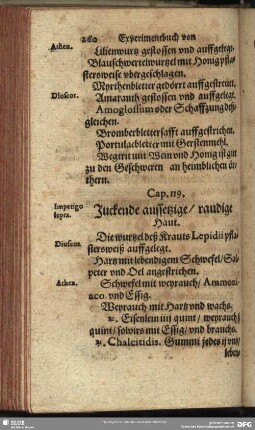 260 Experimentbuch von
Athen. Lilienwurtz gestossen und auffgelegt.
Blauschwertelwurtzel mit Honig pfla-
stersweise vbergeschlagen.
Myrthenbletter gedörrt auffgestreuet.
Dioscor. Amaranth gestossen und auffgelegt.
Amoglossum oder Schaffzung deß-
gleichen.
Bromberbletersafft auffgestrichen.
Portulacbletter mit Gerstenmehl.
Wegerit mit Wein und Honig ist gut
zu den Geschweren an heimblichen ör-
thern.
Cap. 119.
Impetigo
lepra.
Juckende aussetzige / raudige
Haut.
Dioscor. Die wurtzel deß Krauts Lepidii pfla-
stersweiß auffgelegt.
Hartz mit lebendigem Schwefel / Sal-
peter und Oel angestrichen.
Athen. Schwefel mit weyrauch / Ammoni-
aco und Essig.
Weyrauch mit Hartz und wachs.
℞. Eisenlein iiij quint / weyrauch j
quint / solvirs mit Essig / und brauchs.
℞. Chalcitidis. Gummi jedes ij unz /
leben
SLUB
DFG